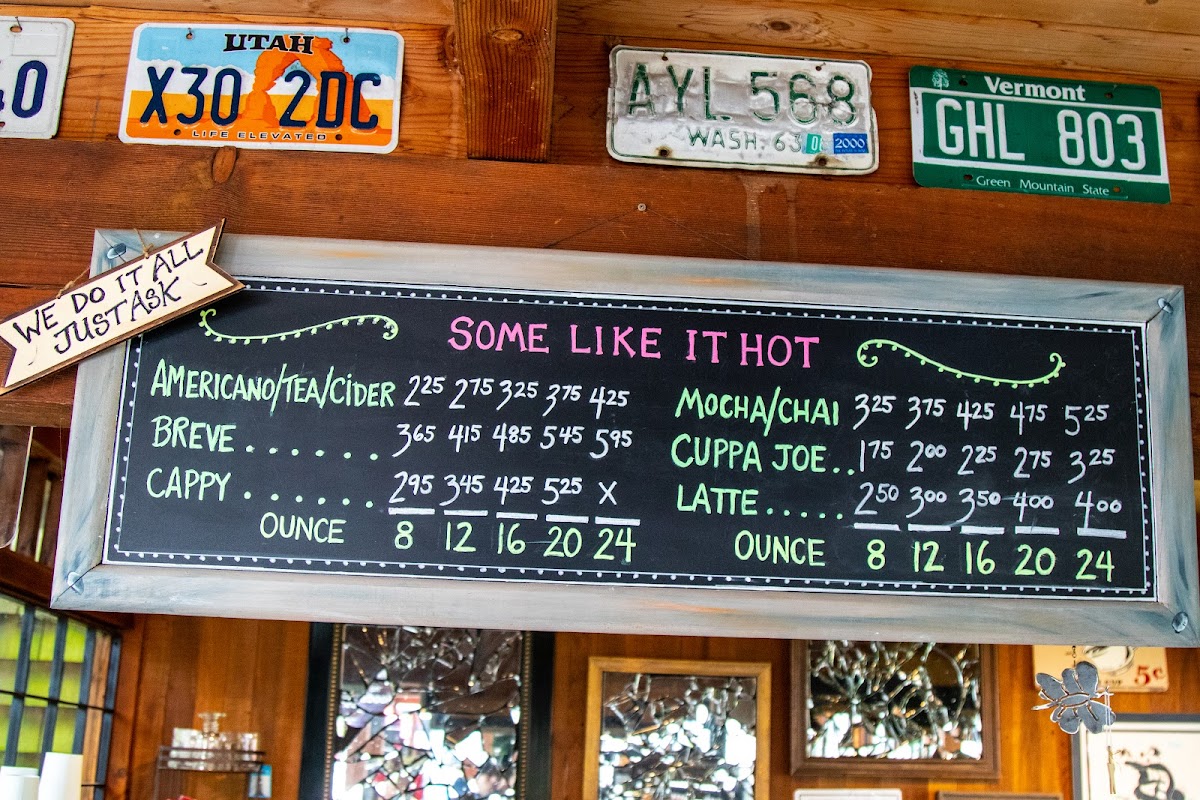 UTAH
X30 2DC
LIFE ELEVATED
AYL 568
WASH. 63 2000
Vermont
GHL 803
Green Mountain State
WE DO IT ALL
JUST ASK
SOME LIKE IT HOT
AMERICANO/TEA/CIDER 225 275 325 375 425
BREVE . . . . . . . 365 415 485 545 595
CAPPY . . . . . . . 295 345 425 525 X
OUNCE 8 12 16 20 24
MOCHA/CHAI 325 375 425 475 525
CUPPA JOE.. 175 200 225 275 325
LATTE..... 250 300 350 400 400
OUNCE 8 12 16 20 24
5¢